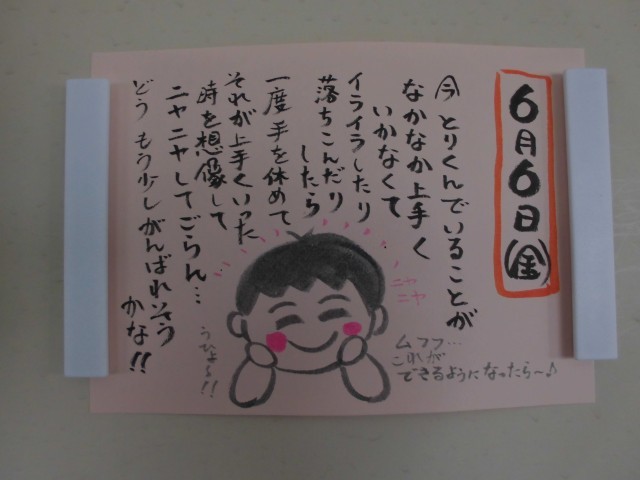 6月6日(金)
今とりくんでいることが
なかなか上手く
いかなくて
イライラしたり
落ちこんだり
したら
一度手を休めて
それが上手くいった
時を想像して
ニヤニヤしてごらん…
どう もう少しがんばれそう
かな!!
ニヤ
ニヤ
ムフフ…
これが
できるようになったら〜♪
うひょう!!